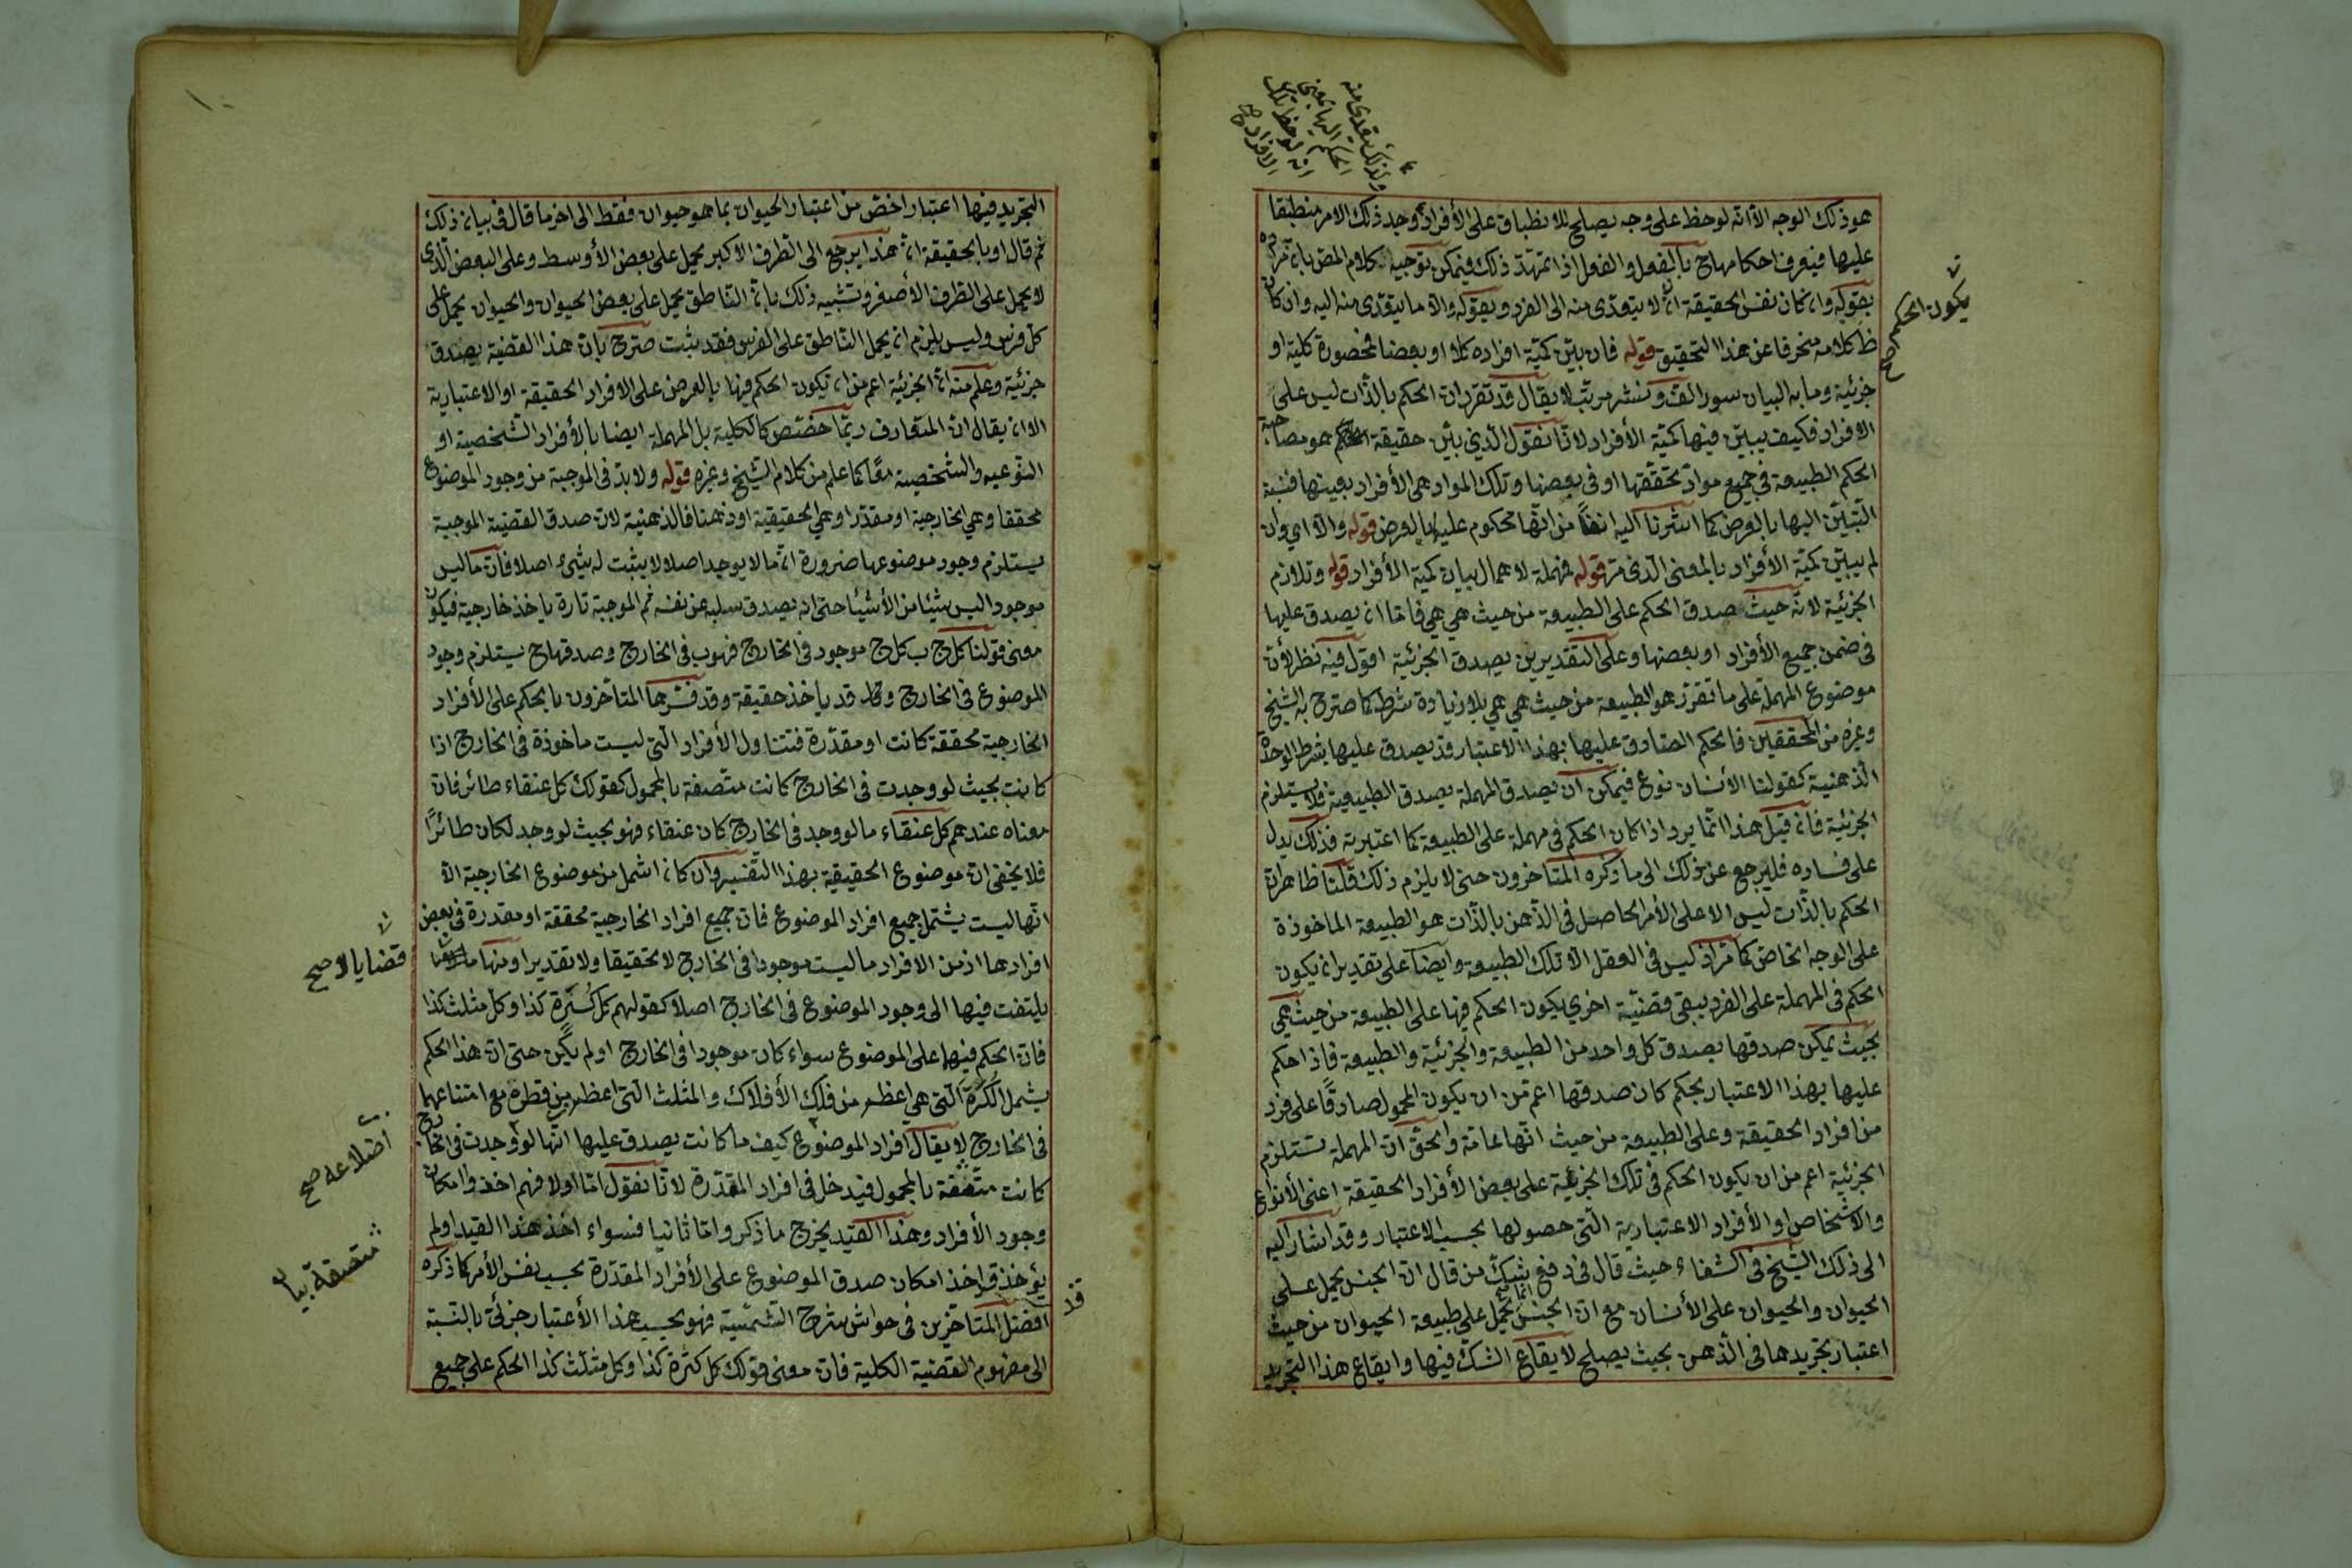 هو ذلك الوجه الا انه لوحظ على وجه يصلح للانطباق على الأفراد وجد ذلك الامر منطبقا
عليها فيعرف احكامها ح بالفعل والفعل اذا تمهّد ذلك فيمكن توجيه كلام المص بان مراده
بقوله وان كان نفس الحقيقة انه لا يتعدّى منه الى الفرد وبقوله والا ما يتعدّى منه اليه وان كان
ظ كلامه منحرفا عن هذا التحقيق قوله فان بيّن كميّة افراده كلا او بعضا فمحصورة كلية او
جزئية وما به البيان سور الف ونشر مرتب لا يقال قد تقرر ان الحكم بالذات ليس على
الافراد فكيف يبيّن فيها كميّة الأفراد لانا نقول الذي بيّن حقيقة هو مصاحبة
الحكم الطبيعة في جميع موادّ تحققها او في بعضها وتلك المواد هي الأفراد بعينها فنسبة
التبيّن اليها بالعرض كما اشرنا اليه انفا من انّها محكوم عليها بالعرض قوله والا اي وان
لم يبيّن كميّة الأفراد بالمعنى الذى مرّ قوله فمهملة لاهمال بيان كمية الأفراد قوله وتلازم
الجزئية لانّه حيث صدق الحكم على الطبيعة من حيث هي هي فاما ان يصدق عليها
في ضمن جميع الأفراد او بعضها وعلى التقديرين يصدق الجزئية اقول فيه نظر لأن
موضوع المهملة على ما تقرّر هو الطبيعة من حيث هي هي بلا زيادة شرط كما صرح به الشيخ
وغيره من المحققين فالحكم الصادق عليها بهذا الاعتبار قد يصدق عليها بشرط الوحدة
الذهنية كقولنا الأنسان نوع فيمكن ان يصدق المهملة بصدق الطبيعية فلا يستلزم
الجزئية فان قيل هذا انما يرد اذا كان الحكم في مهملة على الطبيعة كما اعتبرته فذلك يدل
على فساده فليرجع عن ذلك الى ما ذكره المتاخرون حتى لا يلزم ذلك قلنا ظاهر ان
الحكم بالذات ليس الا على الأمر الحاصل في الذهن بالذات هو الطبيعة الماخوذة
على الوجه الخاص كما مرّ اذ ليس في العقل الا تلك الطبيعة وايضا على تقدير ان يكون
الحكم في المهملة على الفرد يبقى قضيّة اخري يكون الحكم فيها على الطبيعة من حيث هي
بحيث يمكن صدقها بصدق كل واحد من الطبيعة والجزئية والطبيعة فاذا حكم
عليها بهذا الاعتبار بحكم كان صدقها اعم من ان يكون المحمول صادقا على فرد
من افراد الحقيقة وعلى الطبيعة من حيث انها عامة والحق ان المهملة تستلزم
الجزئية اعم من ان يكون الحكم في تلك الجزئية على بعض الأفراد الحقيقة اعنى الأنواع
والأشخاص او الأفراد الاعتبارية التى حصولها بحسب الاعتبار وقد اشار اليه
الى ذلك الشيخ في الشفاء حيث قال في دفع شك من قال ان الجنس يحمل على
الحيوان والحيوان على الأنسان مع ان الجنس انما يحمل على طبيعة الحيوان من حيث
اعتبار تجريدها في الذهن بحيث يصلح لايقاع الشك فيها وايقاع هذا التجريد
يكون الحكم صح
ولذلك يتعدى منه
الحكم اليها بمعنى
انه لو حظ تلك
الافراد صح
التجريد فيها اعتبار اخصّ من اعتبار الحيوان بما هو حيوان فقط الى اخر ما قال في بيان ذلك
ثم قال او بالحقيقة ان هذا يرجع الى الطرف الاكبر يحمل على بعض الأوسط وعلى البعض الّذى
لا يحمل على الطرف الأصغر وتشبيه ذلك بان الناطق يحمل على بعض الحيوان والحيوان يحمل على
كل فرس وليس يلزم ان يحمل الناطق على الفرس فقد يثبت صرّح بان هذا القضية يصدق
جزئية وعلم منه ان الجزئية اعم من ان تكون الحكم فيها بالعرض على الافراد الحقيقة او الاعتبارية
الا ان يقال ان المتعارف ربّما خصّص كالكلية بل المهملة ايضا بالأفراد الشخصية او
النوعيه والشخصية معًا كما علم من كلام الشيخ وغيره قوله ولا بدّ في الموجبة من وجود الموضوع
محققا وهي الخارجية او مقدّرا وهي الحقيقية او ذهنا فالذهنية لان صدق القضية الموجبة
يستلزم وجود موضوعها ضرورة ان ما لا يوجد اصلا لا يثبت له شئ اصلا فان ما ليس
موجود اليس شيئا من الأشيئا حتى انه يصدق سلبه عن نفسه ثم الموجبة تارة ياخذ خارجية فيكون
معنى قولنا كل ج ب كل ج موجود في الخارج فهو ب في الخارج وصدقها ح يستلزم وجود
الموضوع في الخارج قد يأخذ حقيقة وقد فسّرها المتأخرون بالحكم على الأفراد
الخارجية محققة كانت او مقدّرة فتتناول الأفراد الّتى ليست ماخوذة في الخارج اذا
كانت بحيث لو وجدت في الخارج كانت متّصفة بالمحمول كقولك كل عنقاء طائر فان
معناه عندهم كل عنقاء ما لو وجد في الخارج كان عنقاء فهو بحيث لو وجد لكان طائرًا
فلا يخفى ان موضوع الحقيقية بهذا التفسير وان كان اشمل من موضوع الخارجية الا
انّها ليست يشتمل جميع افراد الموضوع فان جميع افراد الخارجية محققة او مقدرة في بعض
افرادها اذ من الافراد ما ليست موجودا في الخارج لا تحقيقا ولا تقديرا ومنها ما
يلتفت فيها الى وجود الموضوع في الخارج اصلا كقولهم كل كرة كذا وكل مثلث كذا
فان الحكم فيها على الموضوع سواء كان موجودا في الخارج او لم يكن حتى ان هذا الحكم
يشمل الكرة الّتى هي اعظم من فلك الأفلاك والمثلث الّتى اعظم من قطره مع امتناعها
في الخارج لا يقال افراد الموضوع كيف ما كانت يصدق عليها انّها لو وجدت في الخارج
كانت متّصفة بالمحمول فيدخل في افراد المقدّرة لانا نقول امّا اولا فهم اخذوا امكان
وجود الأفراد وهذا القيد يخرج ما ذكر وامّا ثانيا فسواء اخذ هذا القيد او لم
يؤخذ قد اخذ امكان صدق الموضوع على الأفراد المقدّرة بحسب نفس الأمر كما ذكره
افضل المتاخرين في حواش شرح الشمسية فهو بحسب هذا الأعتبار جزئى بالنسبة
الى مفهوم القضية الكلية فان معنى قولك كل كرة كذا وكل مثلث كذا الحكم على جميع
قضايا لا صح
اضلاعه صح
متصفة
قد
١٠